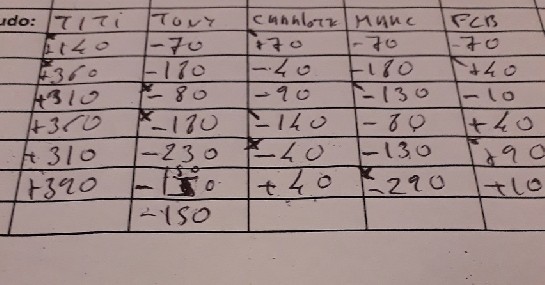 udo: TITI TONY FCB
+140 -70 +70 -70 -70
+360 -180 -40 -180 +40
+310 -80 -90 -130 -10
+360 -180 -140 -80 +40
+310 -230 -40 -130 +90
+390 -150 +40 -290 +10
-150